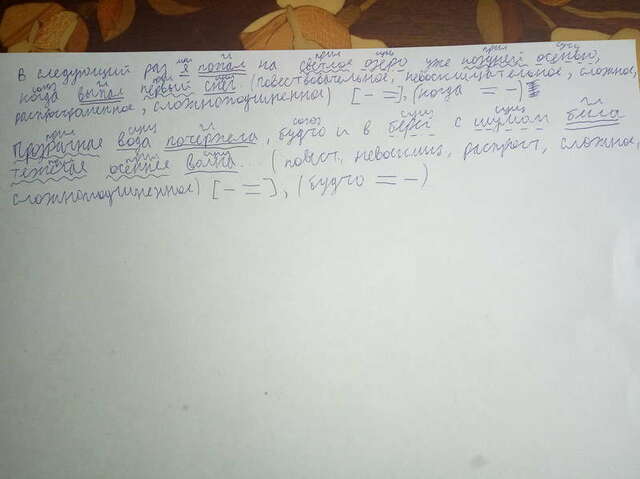 В следующий раз я попал на светлое озеро уже поздней осенью,
когда выпал первый снег (повествовательное, невосклицательное, сложное,
распространенное, сложноподчиненное) [- =], (когда = -)
Прозрачная вода почернела, будто и в берег с шумом била
тяжелая осенняя волна... (повест, невосклиц, распрост, сложное,
сложноподчиненное) [- =], (будто = -)